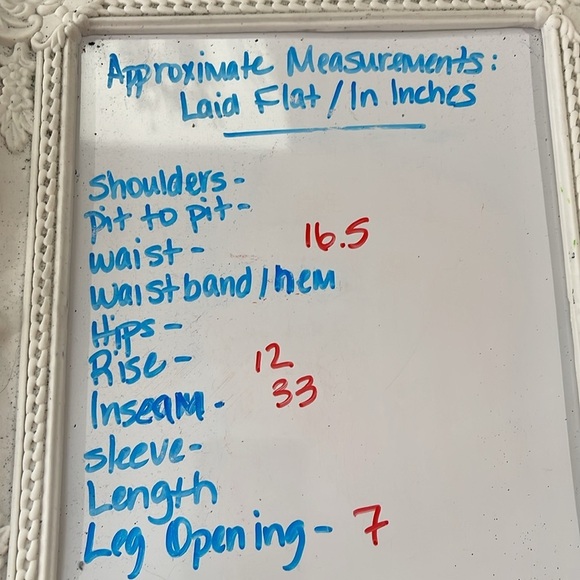 Approximate Measurements:
Laid Flat / In Inches
Shoulders-
Pit to pit-
waist- 16.5
Waistband/hem
Hips-
Rise- 12
Inseam- 33
sleeve-
Length
Leg Opening- 7